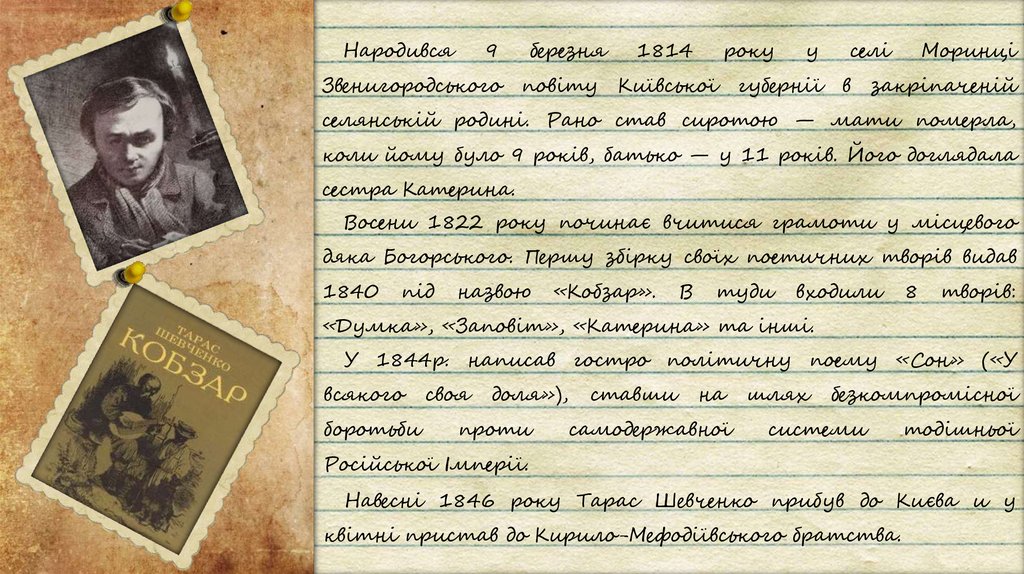 Народився 9 березня 1814 року у селі Моринці
Звенигородського повіту Київської губернії в закріпаченій
селянській родині. Рано став сиротою — мати померла,
коли йому було 9 років, батько — у 11 років. Його доглядала
сестра Катерина.
Восени 1822 року починає вчитися грамоти у місцевого
дяка Богорського. Першу збірку своїх поетичних творів видав
1840 під назвою «Кобзар». В туди входили 8 творів:
«Думка», «Заповіт», «Катерина» та інші.
У 1844р. написав гостро політичну поему «Сон» («У
всякого своя доля»), ставши на шлях безкомпромісної
боротьби проти самодержавної системи тодішньої
Російської Імперії.
Навесні 1846 року Тарас Шевченко прибув до Києва и у
квітні пристав до Кирило-Мефодіївського братства.
ТАРАС
ШЕВЧЕНКО
КОБЗАР